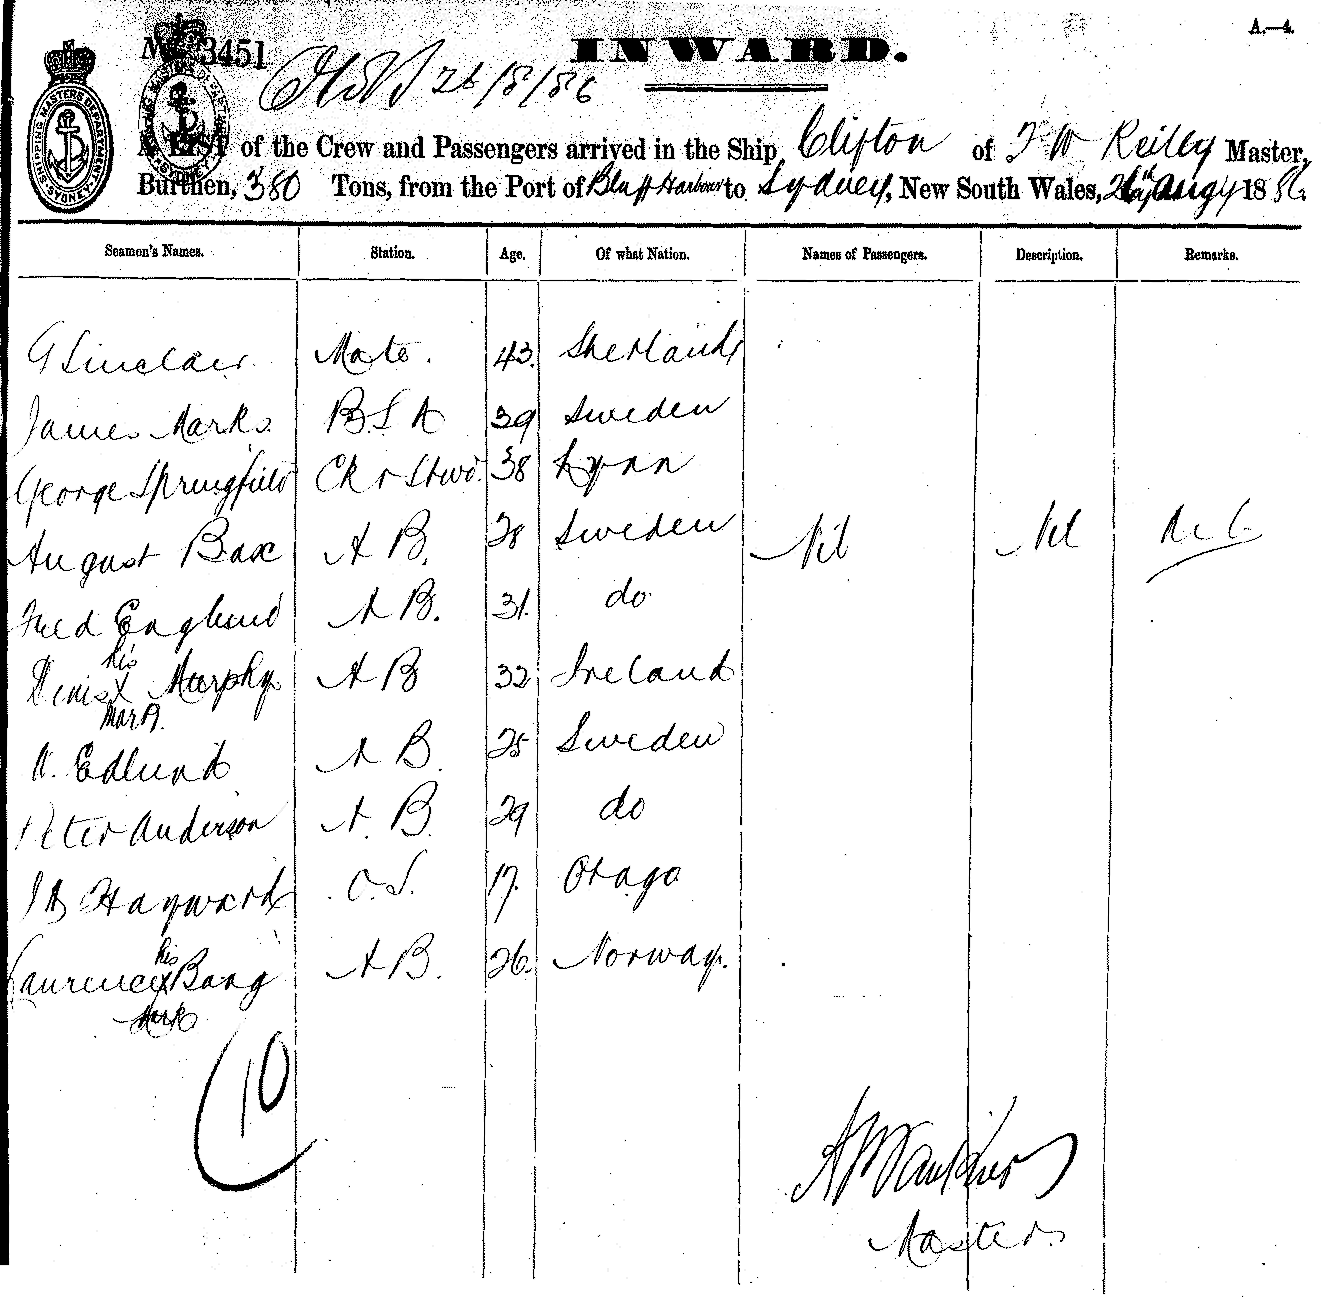 A.—4.
No 3451
INWARD.
26/8/86
A LIST of the Crew and Passengers arrived in the Ship, Clifton of F W Reilly Master,
Burthen, 380 Tons, from the Port of Bluff Harbour to Sydney, New South Wales, 26th Augt 1886.
Seamen's Names. Station. Age. Of what Nation. Names of Passengers. Description. Remarks.
G Sinclair Mate. 43. Shetland
James Marks B.S.A 39 Sweden
George Springfield Ck & Stwd. 38 Lynn
August Bax A B. 28 Sweden Nil Nil Nil
Fred Englund A B. 31. do
Denis his X mark Murphy A B 32 Ireland
A. Edlund A B. 25 Sweden
Peter Anderson A. B. 29 do
J A Hayward O.S. 17. Otago
Laurence his X mark Bang A B. 26. Norway.
10
Master